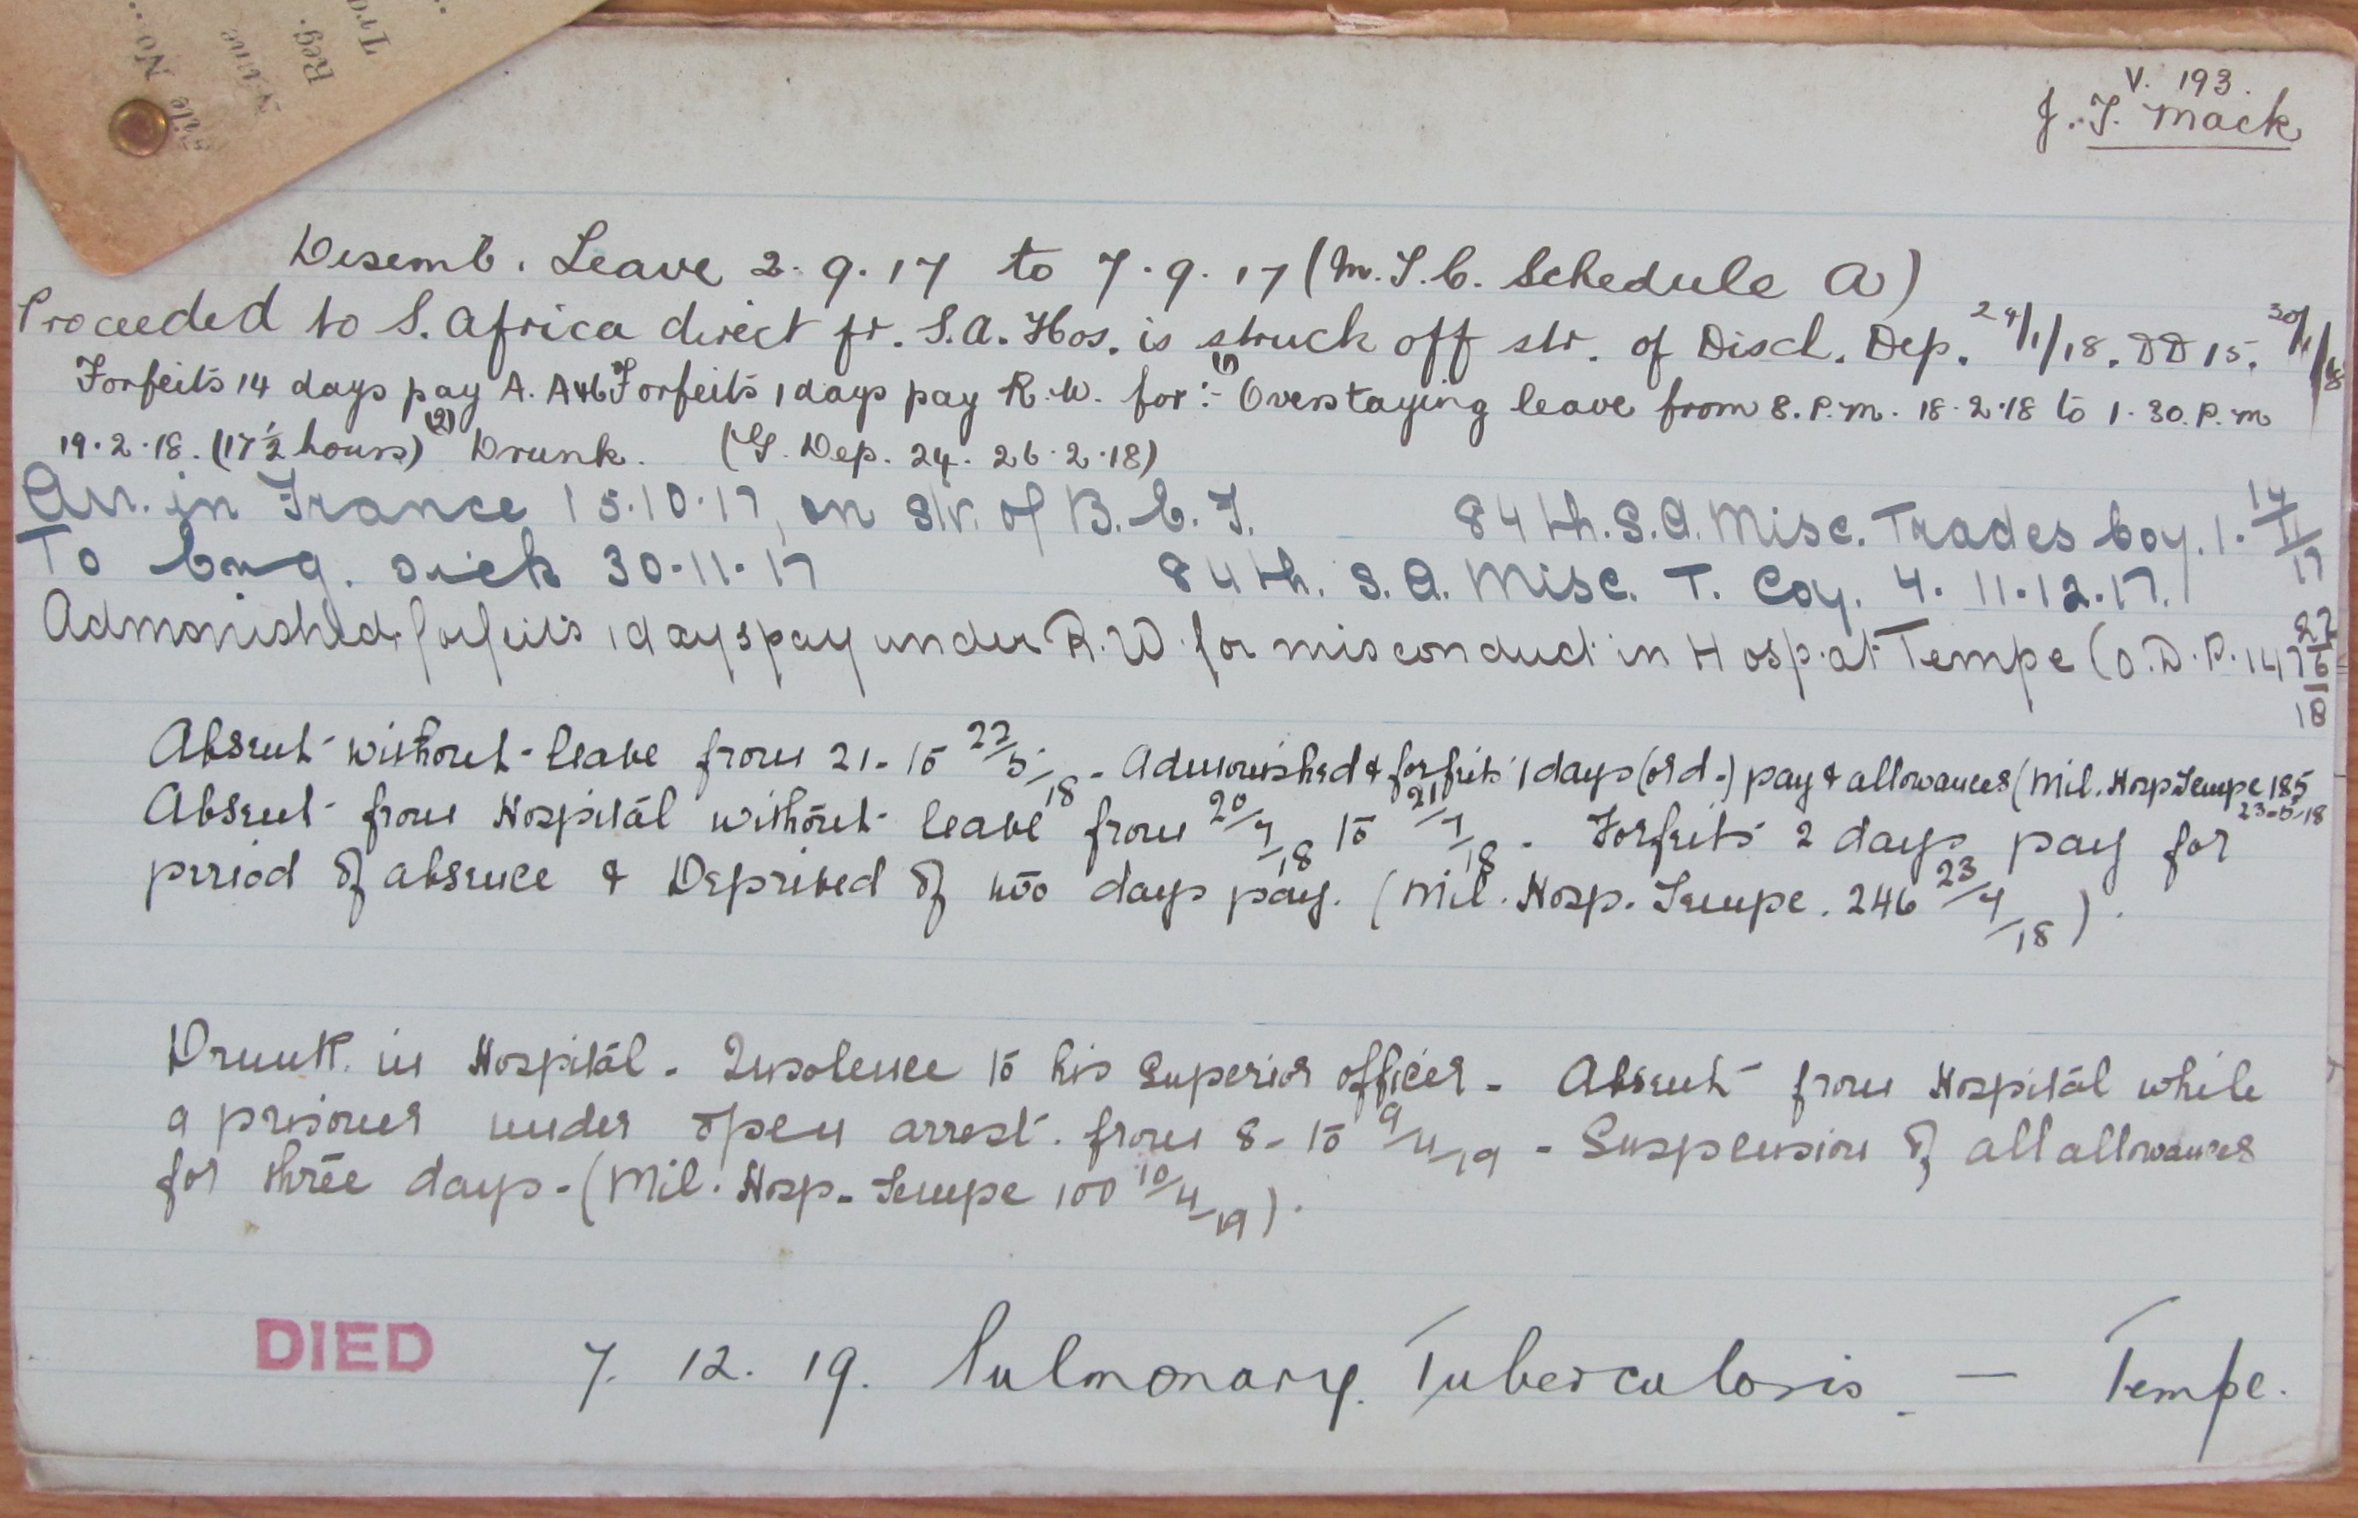 No...
Reg.
V. 193.
J. T. Mack
Disemb. Leave 2.9.17 to 7.9.17 (M.T.C. Schedule A)
Proceeded to S. Africa direct fr. S.A. Hos. is struck off str. of Disch. Dep. 29/1/18. DD 15. 30/1/18
Forfeits 14 days pay A. A46 Forfeits 1 days pay R.W. for :- (1) Overstaying leave from 8.P.m. 18.2.18 to 1.30.P.m
19.2.18. (17½ hours) (2) Drunk. (G. Dep. 24. 26.2.18)
Arr. in France 15.10.17, on str. of B.E.F. 84th. S.A. Misc. Trades Coy. 1. 14/11/17
To Eng. sick 30.11.17 84th. S.A. Misc. T. Coy. 4. 11.12.17.
Admonished, forfeits 1 days pay under R.W. for misconduct in Hosp. at Tempe (O.D.P. 147 27/6/18
Absent without leave from 21. to 22/5/18 - Admonished & forfeits 1 days (ord.) pay & allowances (Mil. Hosp Tempe 185
23-5-18
Absent from Hospital without leave from 20/7/18 to 21/7/18 - Forfeits 2 days pay for
period of absence & Deprived of two days pay. (Mil. Hosp. Tempe. 246 23/7/18).
Drunk in Hospital - Insolence to his Superior officer - Absent from Hospital while
a prisoner under open arrest. from 8 - to 9/4/19 - Suspension of all allowances
for three days - (Mil. Hosp. Tempe 100 10/4/19).
DIED 7. 12. 19. Pulmonary. Tuberculosis. — Tempe.